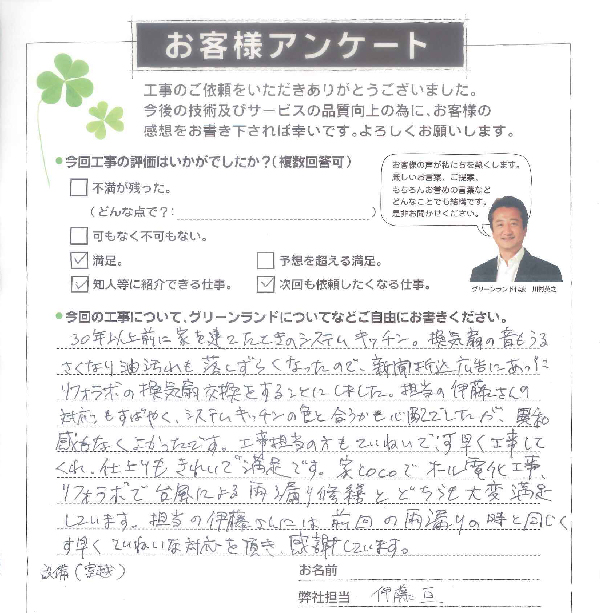 お客様アンケート
工事のご依頼をいただきありがとうございました。
今後の技術及びサービスの品質向上の為に、お客様の
感想をお書き下されば幸いです。よろしくお願いします。
● 今回工事の評価はいかがでしたか?(複数回答可)
お客様の声が私たちを熱くします。
厳しいお言葉、ご提案、
もちろんお誉めの言葉など
どんなことでも結構です。
是非お聞かせください。
不満が残った。
(どんな点で?: )
可もなく不可もない。
満足。
予想を超える満足。
知人等に紹介できる仕事。
次回も依頼したくなる仕事。
グリーンランド代表
● 今回の工事について、グリーンランドについてなどご自由にお書きください。
30年以上前に家を建てたときのシステムキッチン。換気扇の音もうる
さくなり油汚れも落しずらくなったので、新聞折込広告にあった
リフォラボの換気扇交換をすることにしました。担当の伊藤さんの
対応もすばやく、システムキッチンの色と合うかも心配でしたが、異和
感もなくよかったです。工事担当の方もていねいで、す早く工事して
くれ、仕上りもきれいで満足です。家cocoでオール電化工事、
リフォラボで台風による雨漏り修繕とどちらも大変満足
しています。担当の伊藤さんには前回の雨漏りの時と同じく
す早くていねいな対応を頂き、感謝しています。
設備(宮越)
お名前
弊社担当 伊藤